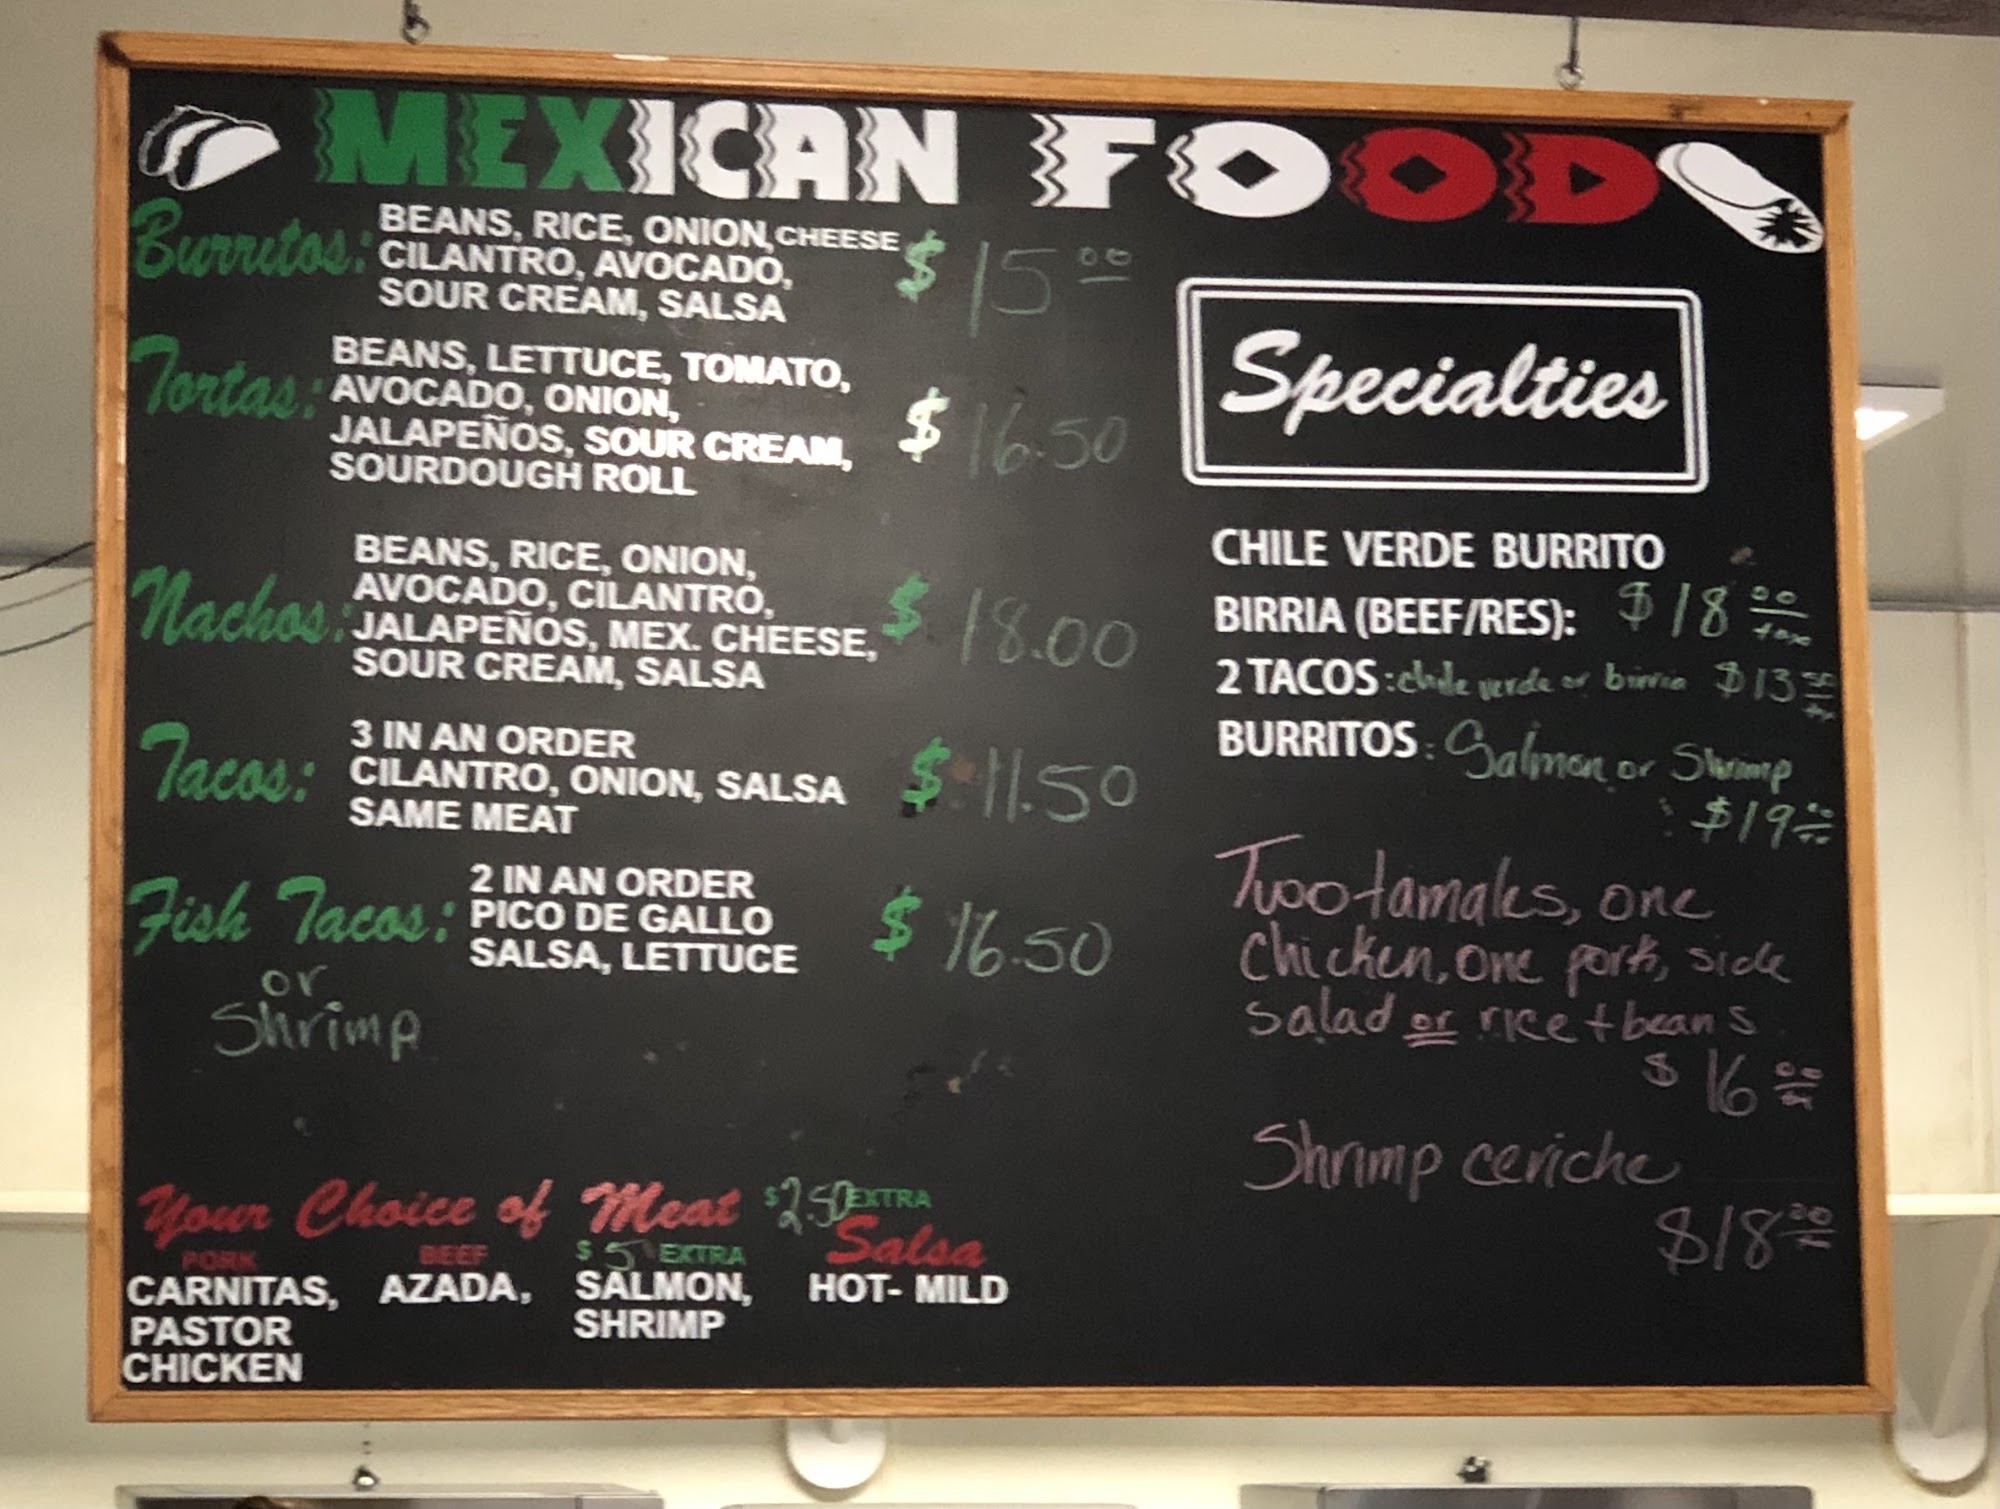 MEXICAN FOOD
Burritos: BEANS, RICE, ONION, CHEESE
CILANTRO, AVOCADO,
SOUR CREAM, SALSA
$ 15 00
Tortas: BEANS, LETTUCE, TOMATO,
AVOCADO, ONION,
JALAPEÑOS, SOUR CREAM,
SOURDOUGH ROLL
$ 16.50
Nachos: BEANS, RICE, ONION,
AVOCADO, CILANTRO,
JALAPEÑOS, MEX. CHEESE,
SOUR CREAM, SALSA
$ 18.00
Tacos: 3 IN AN ORDER
CILANTRO, ONION, SALSA
SAME MEAT
$ 11.50
Fish Tacos: 2 IN AN ORDER
PICO DE GALLO
SALSA, LETTUCE
$ 16.50
or
Shrimp
Your Choice of Meat $2.50 EXTRA
PORK
CARNITAS,
PASTOR
CHICKEN
BEEF
AZADA,
$ 5 EXTRA
SALMON,
SHRIMP
Salsa
HOT- MILD
Specialties
CHILE VERDE BURRITO
BIRRIA (BEEF/RES): $18 00 tax
2 TACOS: chile verde or birria $13 50
BURRITOS: Salmon or Shrimp
: $19 00
Two tamales, one
chicken, one pork, side
salad or rice + beans
$ 16 00
Shrimp ceviche
$18 00